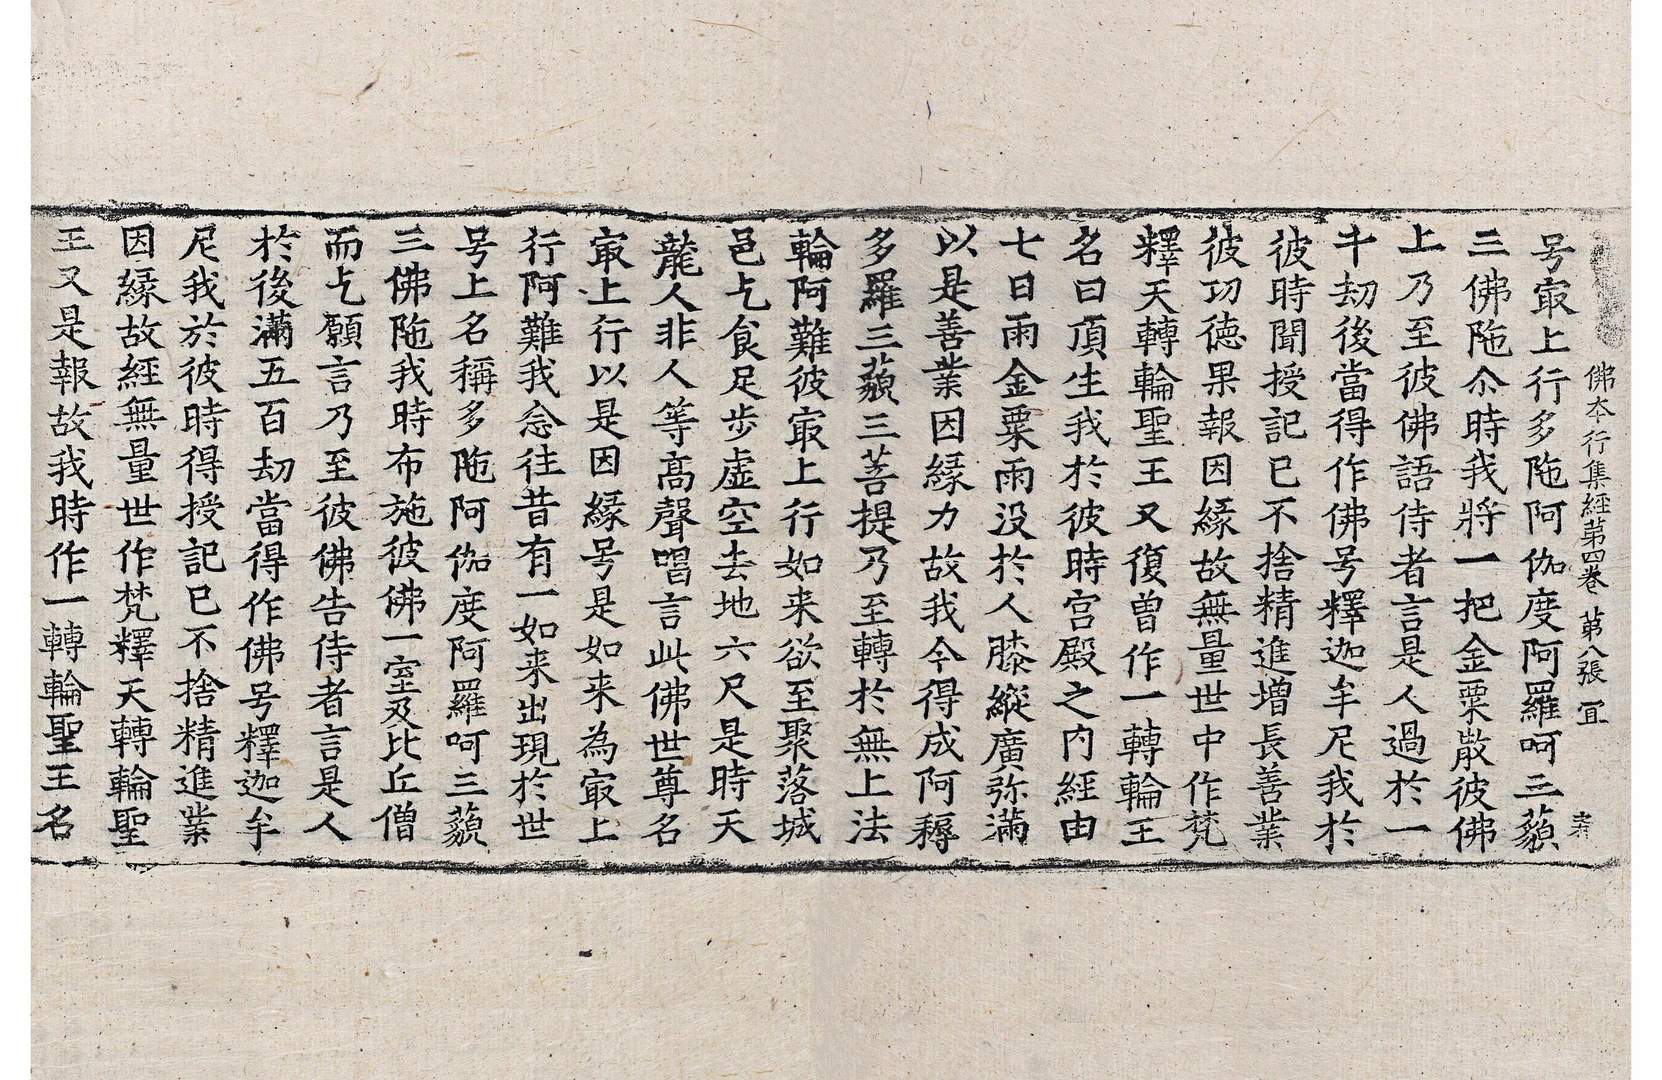 佛夲行集經苐四卷 苐八張 冝
号㝡上行多陁阿伽度阿羅呵三藐
三佛陁尒時我將一把金粟散彼佛
上乃至彼佛語侍者言是人過於一
千劫後當得作佛号釋迦牟尼我於
彼時聞授記已不捨精進增長善業
彼功德果報因緣故無量世中作梵
釋天轉輪聖王又復曾作一轉輪王
名曰頂生我於彼時宮殿之內經由
七日雨金粟雨没於人膝縱廣弥滿
以是善業因緣力故我今得成阿耨
多羅三藐三菩提乃至轉於無上法
輪阿難彼㝡上行如来欲至聚落城
邑乞食足步虛空去地六尺是時天
龍人非人等高聲唱言此佛世尊名
㝡上行以是因緣号是如来為㝡上
行阿難我念往昔有一如来出現於世
号上名稱多陁阿伽度阿羅呵三藐
三佛陁我時布施彼佛一室及比丘僧
而乞願言乃至彼佛告侍者言是人
於後滿五百劫當得作佛号釋迦牟
尼我於彼時得授記已不捨精進業
因緣故經無量世作梵釋天轉輪聖
王又是報故我時作一轉輪聖王名